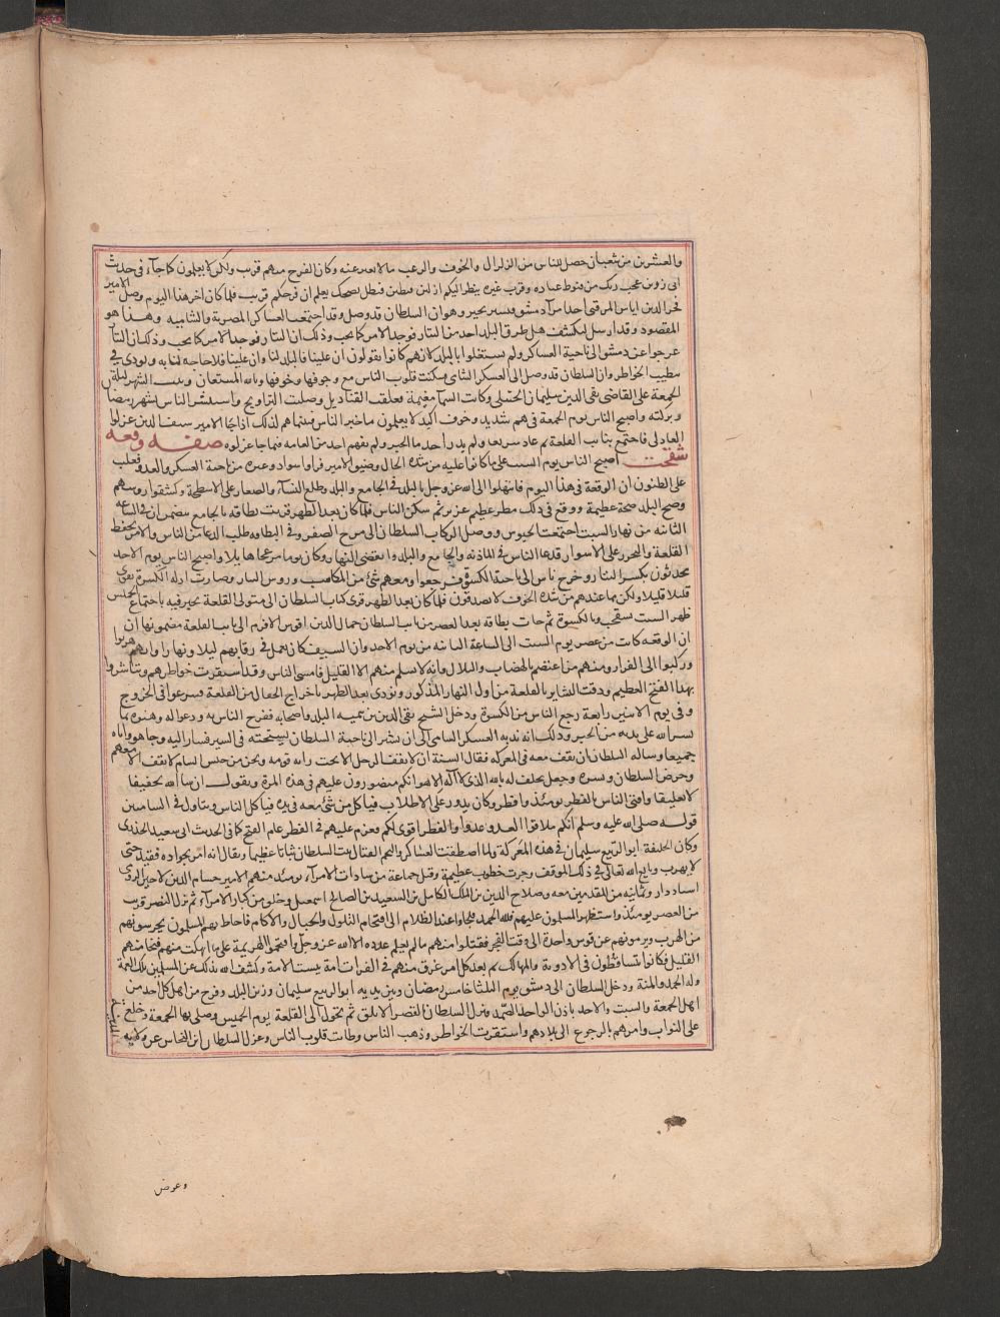 والعشرين من شعبان حصل للناس من الزلزال والخوف والرعب ما لا يعبر عنه وكان الفرج منهم قريب ولكن لا يعلمون كما جاء في حديث
ابي رزين عجب ربك من قنوط عباده وقرب غيره ينظر اليكم ازلين قنطين فيظل يضحك يعلم ان فرجكم قريب فلما كان اخر هذا اليوم وصل الامير
فخر الدين اياس المرقبي احد امرآ دمشق فبشر بخير وهو ان السلطان قد وصل وقد اجتمعت العساكر المصرية والشامية وهذا هو
المقصود وقد ارسل لنكشف هل طرق البلد احد من التتار فوجد الامر كما يحب وذلك ان التتار فوجد الامر كما يحب وذلك ان التتار
عرجوا عن دمشق الى ناحية العساكر ولم يشتغلوا بالبلد لانهم كانوا يقولون ان غلبنا فالبلد لنا وان غلبنا فلا حاجة لنا به ونودي في
تطييب الخواطر وان السلطان قد وصل الى العسكر الشامي فسكنت قلوب الناس مع وجوفها وخوفها وبالله المستعان وثبت الشهر ليلة
الجمعة على القاضي تقي الدين سليمان الحنبلي وكانت السمآ مغيمة فعلقت القناديل وصليت التراويح واستبشر الناس بشهر رمضان
وبركته واصبح الناس يوم الجمعة في هم شديد وخوف اكيد لا يعلمون ما خبر الناس فبينما هم لذلك اذ جآ الامير سيف الدين غرلوا
العادلي فاجتمع بنائب القلعة ثم عاد سريعا ولم يدر احد ما الخبر ولم يفهم احد من العامة فيما جا غرلوه صفة وقعة
شقحب اصبح الناس يوم السبت على ما كانوا عليه من شدة الحال وضيق الامر فراوا سوادا وغبرة من ناحية العسكر والعدو فغلب
على الظنون ان الوقعة في هذا اليوم فابتهلوا الى الله عز وجل بالبلد في الجامع والبلد وطلع النسآ والصغار على الاسطحة وكشفوا روسهم
وضج البلد ضجة عظيمة ووقع في ذلك مطر عظيم غزير ثم سكن الناس فلما كان بعد الظهر قريت بطاقة بالجامع تتضمن ان في الساعة
الثانية من نهار السبت اجتمعت الجيوش ووصل الركاب السلطان الى مرج الصفر وفي البطاقة طلب الدعا من الناس والامر بحفظ
القلعة والتحرز على الاسوار فدعا الناس في الماذنه والجامع والبلد وانقضى النهار وكان يوما مزعجا هايلا واصبح الناس يوم الاحد
يتحدثون بكسر التتار وخرج ناس الى ناحية الكسوة فرجعوا ومعهم شئ من المكاسب وروس التتار وصارت ادلة الكسرة تقوى
قليلا قليلا ولكن بما عندهم من شدة الخوف لا يصدقون فلما كان بعد الظهر قرئ كتاب السلطان الى متولى القلعة يخبر فيه باجتماع الجيش
ظهر السبت بشقحب وبالكسوة ثم جات بطاقة بعد العصر من نايب السلطان جمال الدين اقوش الافرم الى نايب القلعة مضمونها ان
ان الوقعة كانت من عصر يوم السبت الى الساعة الثانية من يوم الاحد وان السيف كان يعمل في رقابهم ليلا ونهارا وانهم هربوا
وركبوا الى الفرار ومنهم من اعتصم بالهضاب والتلال وانه لا يسلم منهم الا القليل فامسى الناس وقد استقرت خواطرهم وتباشروا
بهذا الفتح العظيم ودقت البشاير بالقلعة من اول النهار المذكور ونودي بعد الظهر باخراج الجفال من القلعة فشرعوا في الخروج
وفي يوم الاثنين رابعه رجع الناس من الكسوة ودخل الشيخ تقي الدين بن تيمية البلد واصحابه ففرح الناس به ودعوا له وهنوه بما
يسر الله على يديه من الخير وذلك انه ندبه العسكر الشامي الى ان يسير الى ناحية السلطان يستحثه في السير فسار اليه وجا هو واياه
جميعا وساله السلطان ان يقف معه في المعركة فقال السنة ان لا يقف الرجل الا تحت راية قومه ونحن من جيش الشام لا نقف الا معهم
وحرض السلطان وبشره وجعل يحلف له بالله الذي لا اله الا هو انكم منصورون عليهم في هذه المرة ويقول ان شا الله تحقيقا
لا تعليقا وافتى الناس بالفطر يومئذ وافطر وكان يدور على الاطلاب فياكل من شئ معه في يده فياكل الناس ويتاول في الشاميين
قوله صلى الله عليه وسلم انكم ملاقوا العدو غدا والفطر اقوى لكم وعزم عليهم في الفطر عام الفتح كما في الحديث ابي سعيد الخدري
وكان الخليفة ابو الربيع سليمان في هذه المعركة ولما اصطفت العساكر والتحم القتال ثبت السلطان ثباتا عظيما ويقال انه امر بجواده فقيد حتى
لا يهرب وبايع الله تعالى في ذلك الموقف وجرت خطوب عظيمة وقتل جماعة من سادات الامرآء يومئذ منهم الامير حسام الدين لاجين الرومي
استاددار وثمانية من المقدمين معه وصلاح الدين بن الملك الكامل بن السعيد بن الصالح اسمعيل وخلق من كبار الامرآء ثم نزل النصر قريب
من العصر يومئذ واستظهر المسلمون عليهم فلله الحمد فلجاوا عند الظلام الى اقتحام التلول والجبال والاكام فاحاط بهم المسلمون يحرسونهم
من الهرب ويرمونهم عن قوس واحدة الى وقت الفجر فقتلوا منهم ما لم يعلم عدده الا الله عز وجل
القليل فكانوا يتساقطون في الاودية والمهالك ثم بعد كل امر غرق منهم في الفرات امة وكشف الله بذلك عن المسلمين تلك الغمة
وله الحمد والمنة ودخل السلطان الى دمشق يوم الثلثا خامس رمضان وبين يديه ابو الربيع سليمان وزين البلد وفرح من اهل كل احد من
اهل الجمعة والسبت والاحد باذن الواحد الصمد ونزل السلطان القصر الابلق ثم تحول الى القلعة يوم الخميس وصلى بها الجمعة وخلع
على النواب وامرهم بالرجوع الى بلادهم واستقرت الخواطر وذهب الناس وطابت قلوب الناس وعزل السلطان ابن النحاس عن ولاية
وعوض